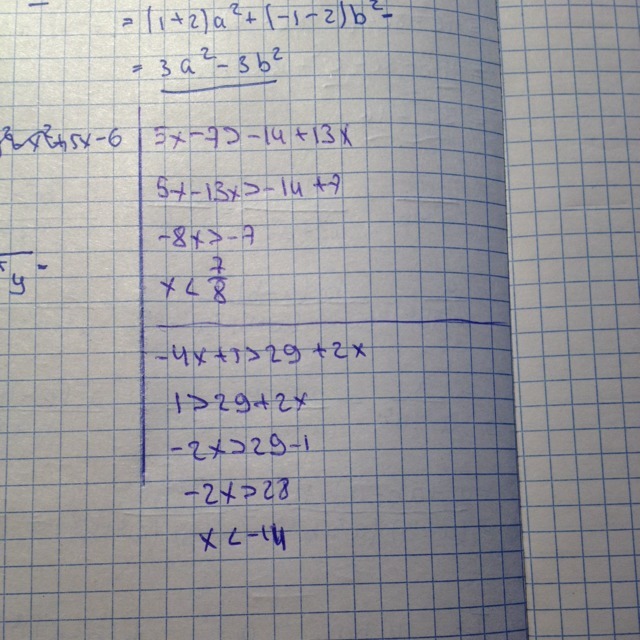 = (1+2)a²+(-1-2)b²-
= 3a²-3b²
5x-7>-14+13x
5x-13x>-14+7
-8x>-7
x < 7/8
-4x+1>29+2x
1>29+2x
-2x>29-1
-2x>28
x<-14
y